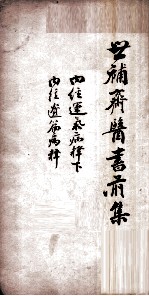 世補齋醫書前集
內经運氣病釋下
內经遺篇病釋